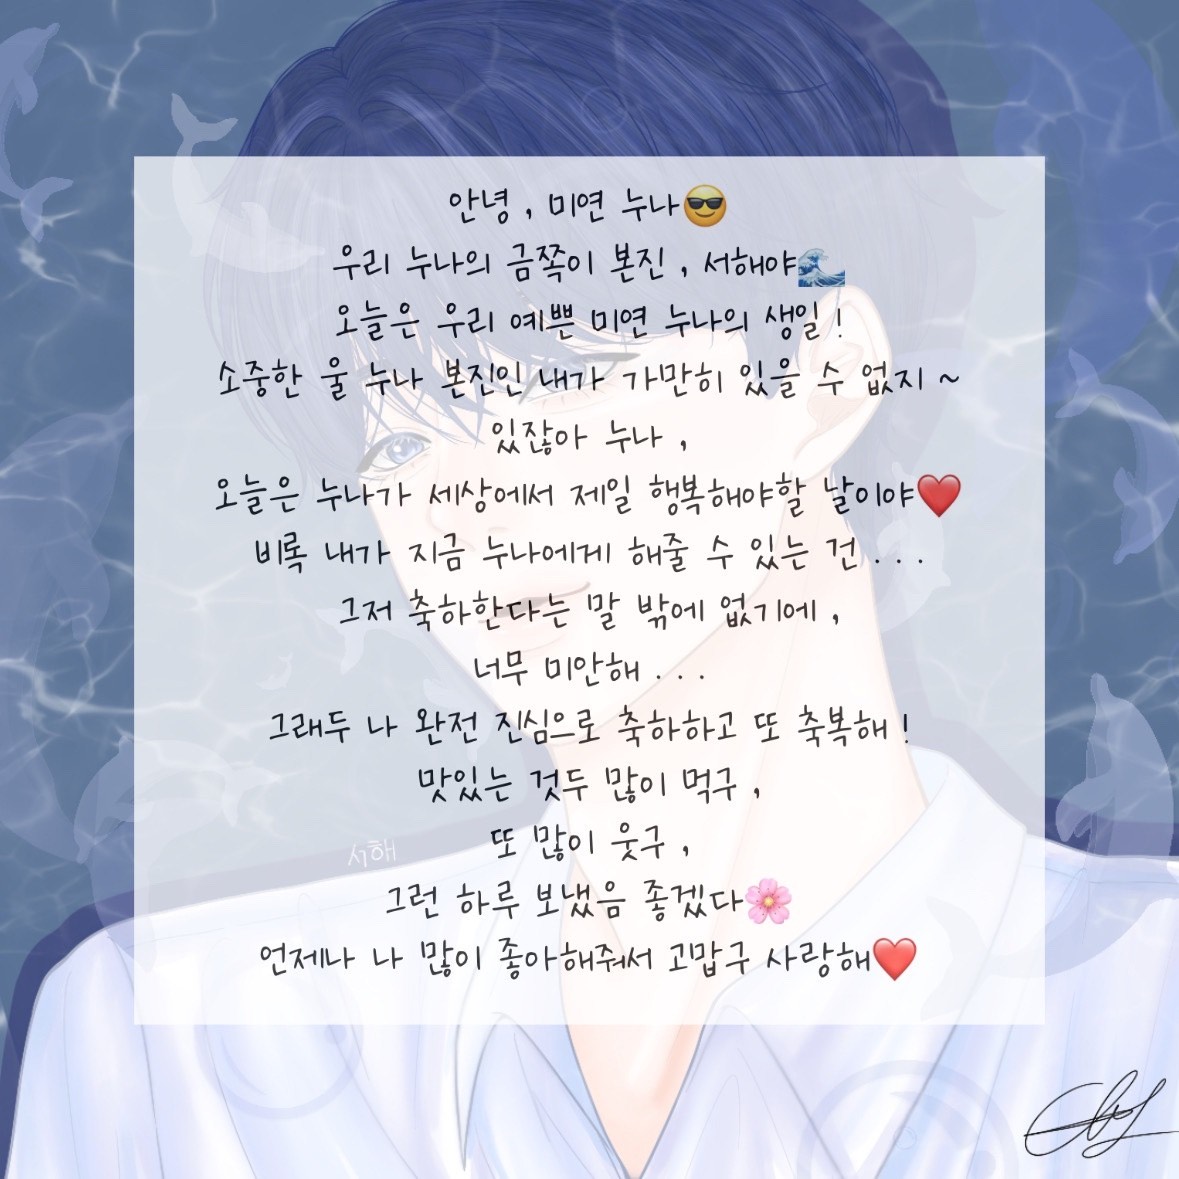 안녕 , 미연 누나😎
우리 누나의 금쪽이 본진 , 서해야🌊
오늘은 우리 예쁜 미연 누나의 생일 !
소중한 울 누나 본진인 내가 가만히 있을 수 없지 ~
있잖아 누나 ,
오늘은 누나가 세상에서 제일 행복해야할 날이야❤️
비록 내가 지금 누나에게 해줄 수 있는 건 . . .
그저 축하한다는 말 밖에 없기에 ,
너무 미안해 . . .
그래두 나 완전 진심으로 축하하고 또 축복해 !
맛있는 것두 많이 먹구 ,
또 많이 웃구 ,
서해
그런 하루 보냈음 좋겠다🌸
언제나 나 많이 좋아해줘서 고맙구 사랑해❤️